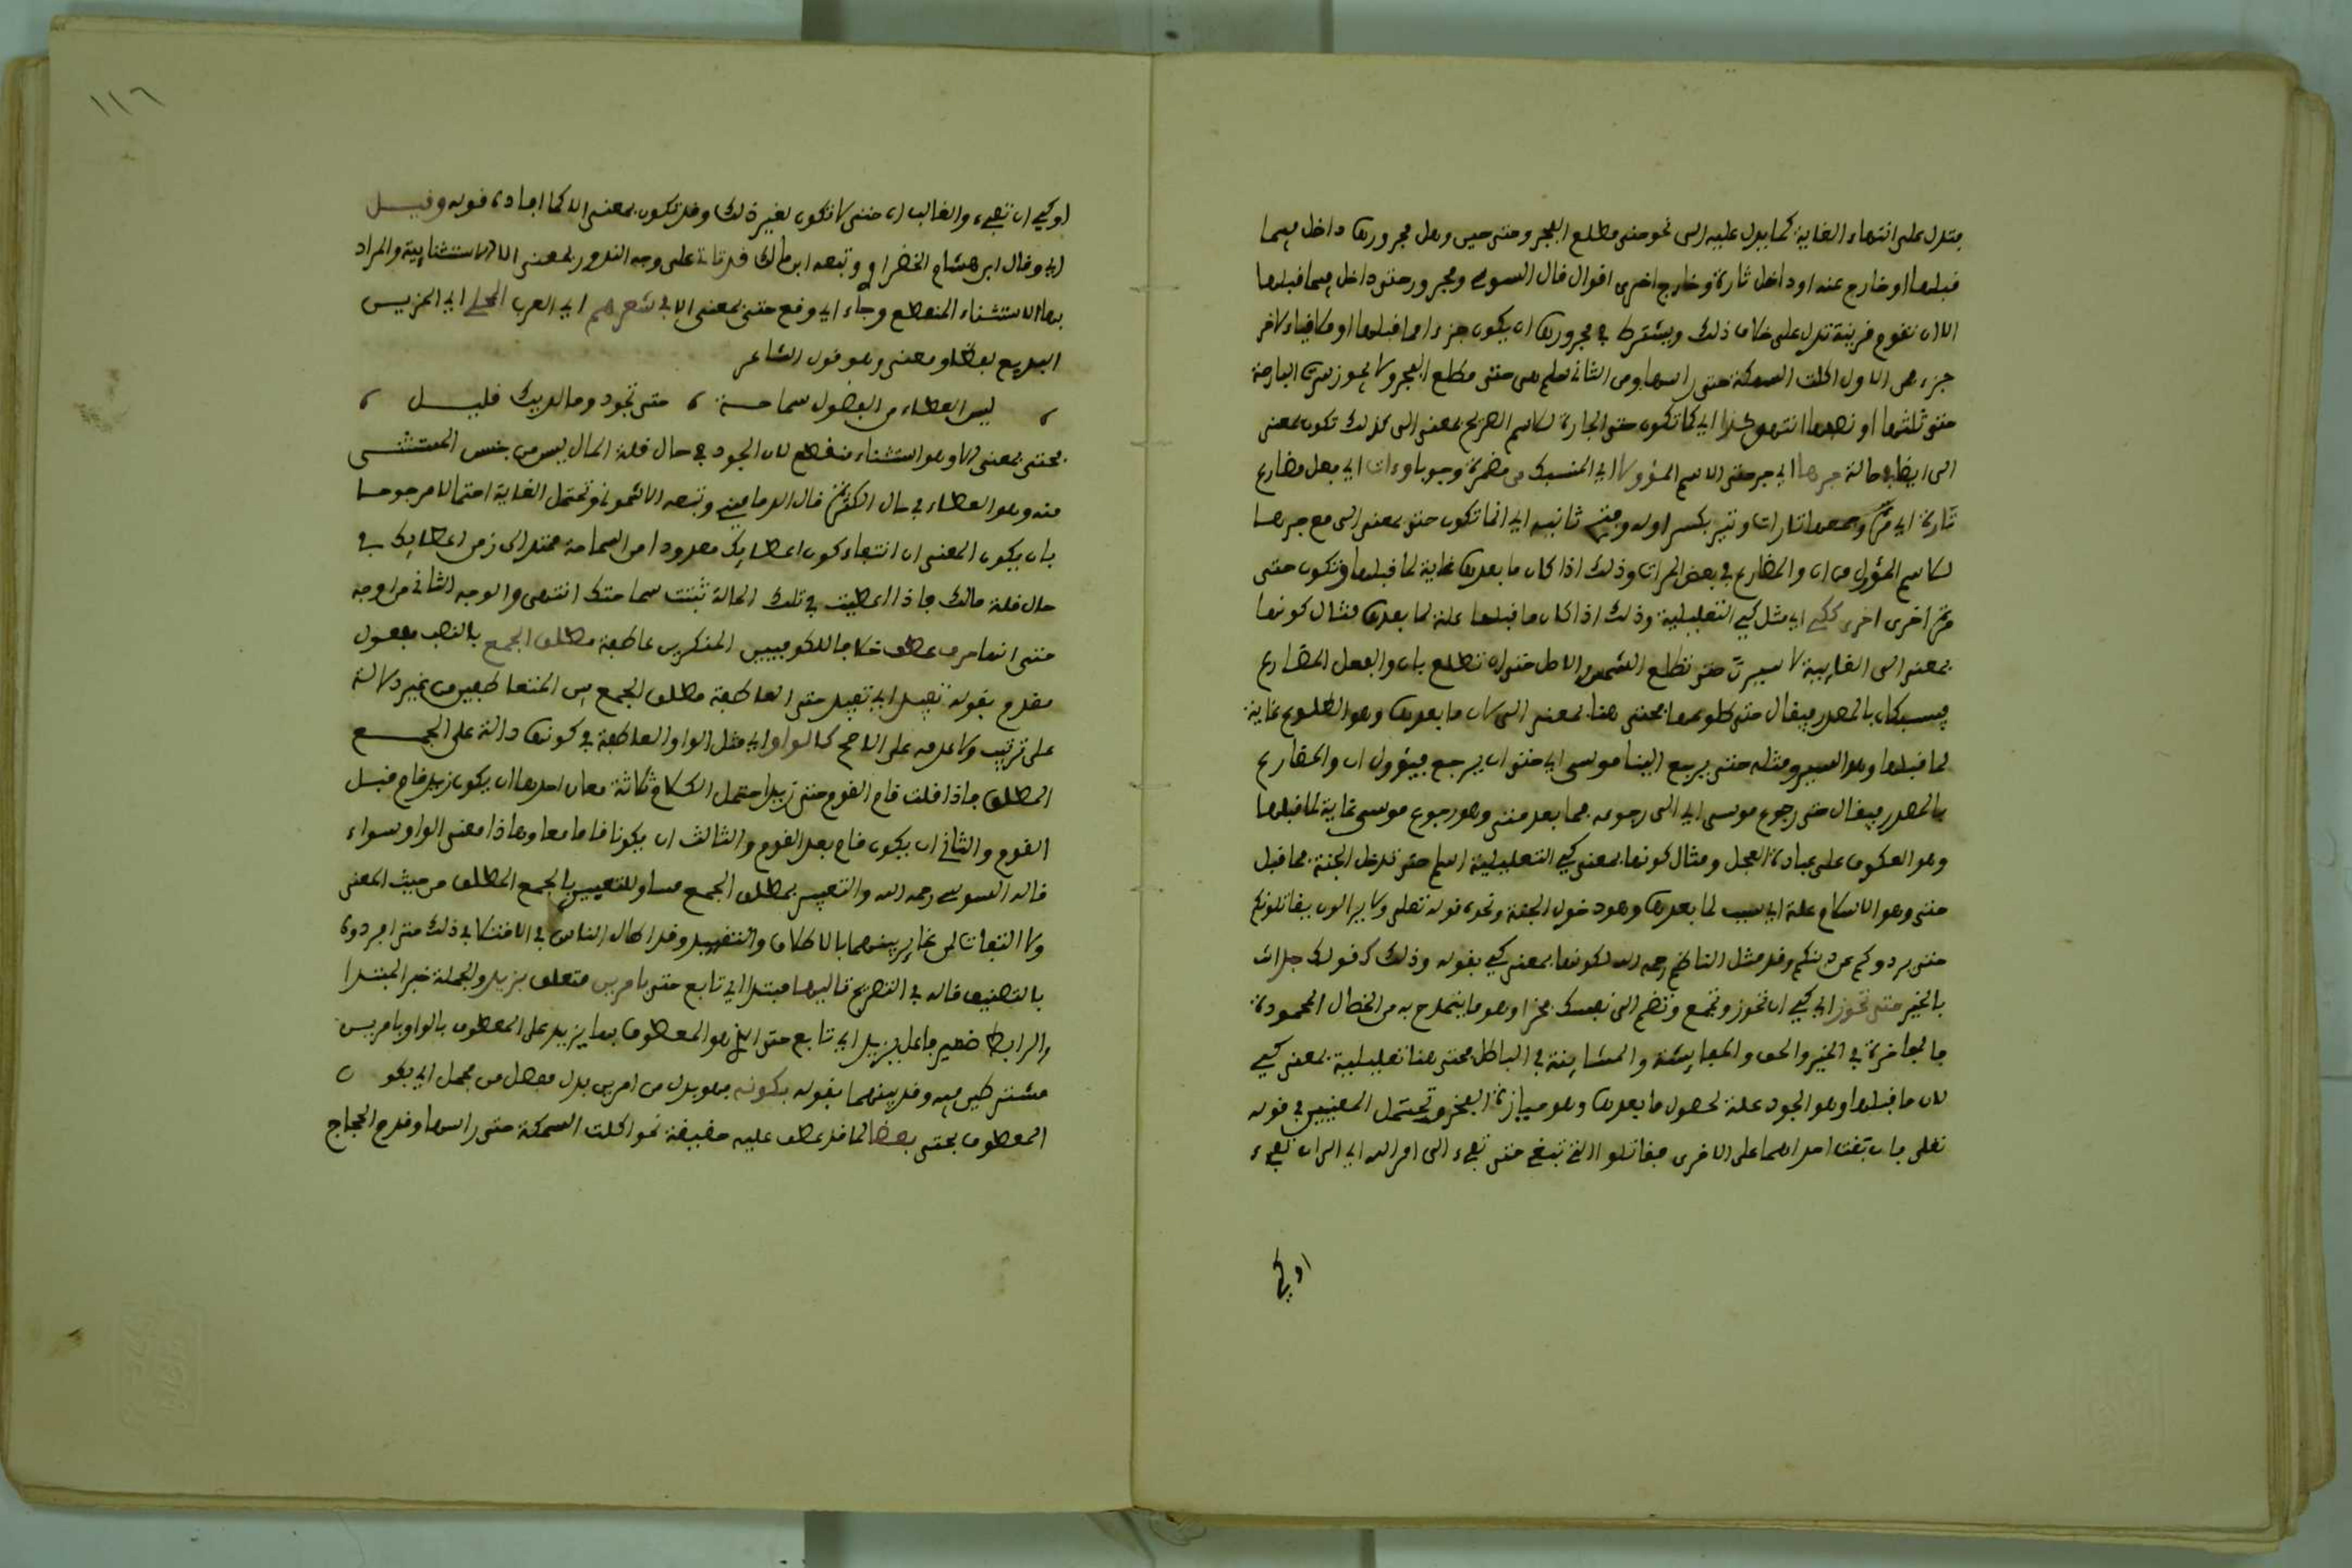 فتدل على انتهاء الغاية كما يدل عليه الى نحو حتى مطلع الفجر وحتى حين وهل مجرورها داخل فيما
قبلها او خارج عنه او داخل تارة وخارج اخرى اقوال قال السوسي ومجرور حتى داخل فيما قبلها
الا ان تقوم قرينة تدل على خلاف ذلك ويشترط في مجرورها ان يكون جزءا مما قبلها او ملاقيا لاخر
جزء فمن الاول اكلت السمكة حتى راسها ومن الثاني سلم هي حتى مطلع الفجر ولا يجوز سرت البارحة
حتى ثلثها او نصفها انتهى كذا اي كما تكون حتى الجارة للاسم الصريح بمعنى الى كذلك تكون بمعنى
الى ايضا حالة جرها اي جر حتى الاسم المؤولا اي المنسبك من مضمرة وجوبا وءات اي فعل مضارع
تارة اي مرة وجمعها تارات وتير بكسر اوله وفتح ثانيه اي انما تكون حتى بمعنى الى مع جرها
للاسم المؤول من ان والمضارع في بعض المرات وذلك اذا كان ما بعدها غاية لما قبلها وتكون حتى
مرة اخرى اخرى ككي اي مثل كي التعليلية وذلك اذا كان ما قبلها علة لما بعدها فمثال كونها
بمعنى الى الغايية لاسيرن حتى تطلع الشمس والاصل حتى ان تطلع بان والفعل المضارع
فيسبكان بالمصدر فيقال حتى طلوعها فحتى هنا بمعنى الى لان ما بعدها وهو الطلوع غاية
لما قبلها وهو السير ومثله حتى يرجع الينا موسى اي حتى ان يرجع فيؤول ان والمضارع
بالمصدر فيقال حتى رجوع موسى اي الى رجوعه فما بعد حتى وهو رجوع موسى غاية لما قبلها
وهو العكوف على عبادة العجل ومثال كونها بمعنى كي التعليلية اسلم حتى تدخل الجنة فما قبل
حتى وهو الاسلام علة اي سبب لما بعدها وهو دخول الجنة ونحوه قوله تعلى ولا يزالون يقاتلونكم
حتى يردوكم عن دينكم وقد مثل الناظم رحمه الله لكونها بمعنى كي بقوله وذلك كقولك جد ات
بالخير حتى تحوز اي كي ان تحوز وتجمع وتضم الى نفسك فخرا وهو ما يتمدح به من الخصال المحمودة
فالمفاخرة في الخير والحق والمعايشة والمشاينة في الباطل فحتى هنا تعليلية بمعنى كي
لان ما قبلها وهو الجود علة لحصول ما بعدها وهو حيازة الفخر وتحتمل المعنيين في قوله
تعلى فان بغت احداهما على الاخرى فقاتلوا التي تبغي حتى تفيء الى امر الله اي الى ان تفيء
او كي
١١٦
او كي ان تفيء والغالب ان حتى لا تكون لغير ذلك وقد تكون بمعنى الا كما افاده قوله وقيل
اي وقال ابن هشام الخضراوي وتبعه ابن مالك قد تات على وجه الندور بمعنى الا الاستثنايية والمراد
بها الاستثناء المنقطع وجاء اي وقع حتى بمعنى الا في شعرهم اي العرب المحلى اي المزين
البديع لفظا ومعنى وهو قول الشاعر
ليس العطاء من الفضول سماحة ، حتى تجود وما لديك قليل ،
فحتى بمعنى الا وهو استثناء منقطع لان الجود في حال قلة المال ليس من جنس المستثنى
منه وهو العطاء في حال الكثرة قال الدماميني وتبعه الاشموني وتحتمل الغاية احتمالا مرجوحا
بان يكون المعنى ان انتفاء كون اعطايك معدودا من السماحة ممتد الى زمن اعطايك في
حال قلة مالك فاذا اعطيت في تلك الحالة ثبتت سماحتك انتهى والوجه الثاني من اوجه
حتى انها حرف عطف خلافا للكوفيين المنكرين عاطفة مطلق الجمع بالنصب مفعول
مقدم بقوله تفيد اي تفيد حتى العاطفة مطلق الجمع بين المتعاطفين من غير دلالة
على ترتيب ولا عدمه على الاصح كالواو اي مثل الواو العاطفة في كونها دالة على الجمع
المطلق فاذا قلت قام القوم حتى زيد احتمل الكلام ثلاثة معان احدها ان يكون زيد قام قبل
القوم والثاني ان يكون قام بعد القوم والثالث ان يكونا قاما معا وهاذا معنى الواو سواء
قاله السوسي رحمه الله والتعبير بمطلق الجمع مساو للتعبير بالجمع المطلق من حيث المعنى
ولا التفات لمن غاير بينهما بالاطلاق والتقييد وقد اطال الناس في الافتكا في ذلك حتى افردوه
بالتصنيف قاله في التصريح تاليها مبتدا اي تابع حتى بامرين متعلق بيزيد والجملة خبر المبتدا
والرابط ضمير فاعل بيزيد اي تابع حتى الذي هو المعطوف بها يزيد على المعطوف بالواو بامرين
مشترطين فيه وقد بينهما بقوله بكونه فهو بدل من امرين بدل مفصل من مجمل اي بكون
المعطوف بحتى بعضا لما قد عطف عليه حقيقة نحو اكلت السمكة حتى راسها وقدم الحجاج